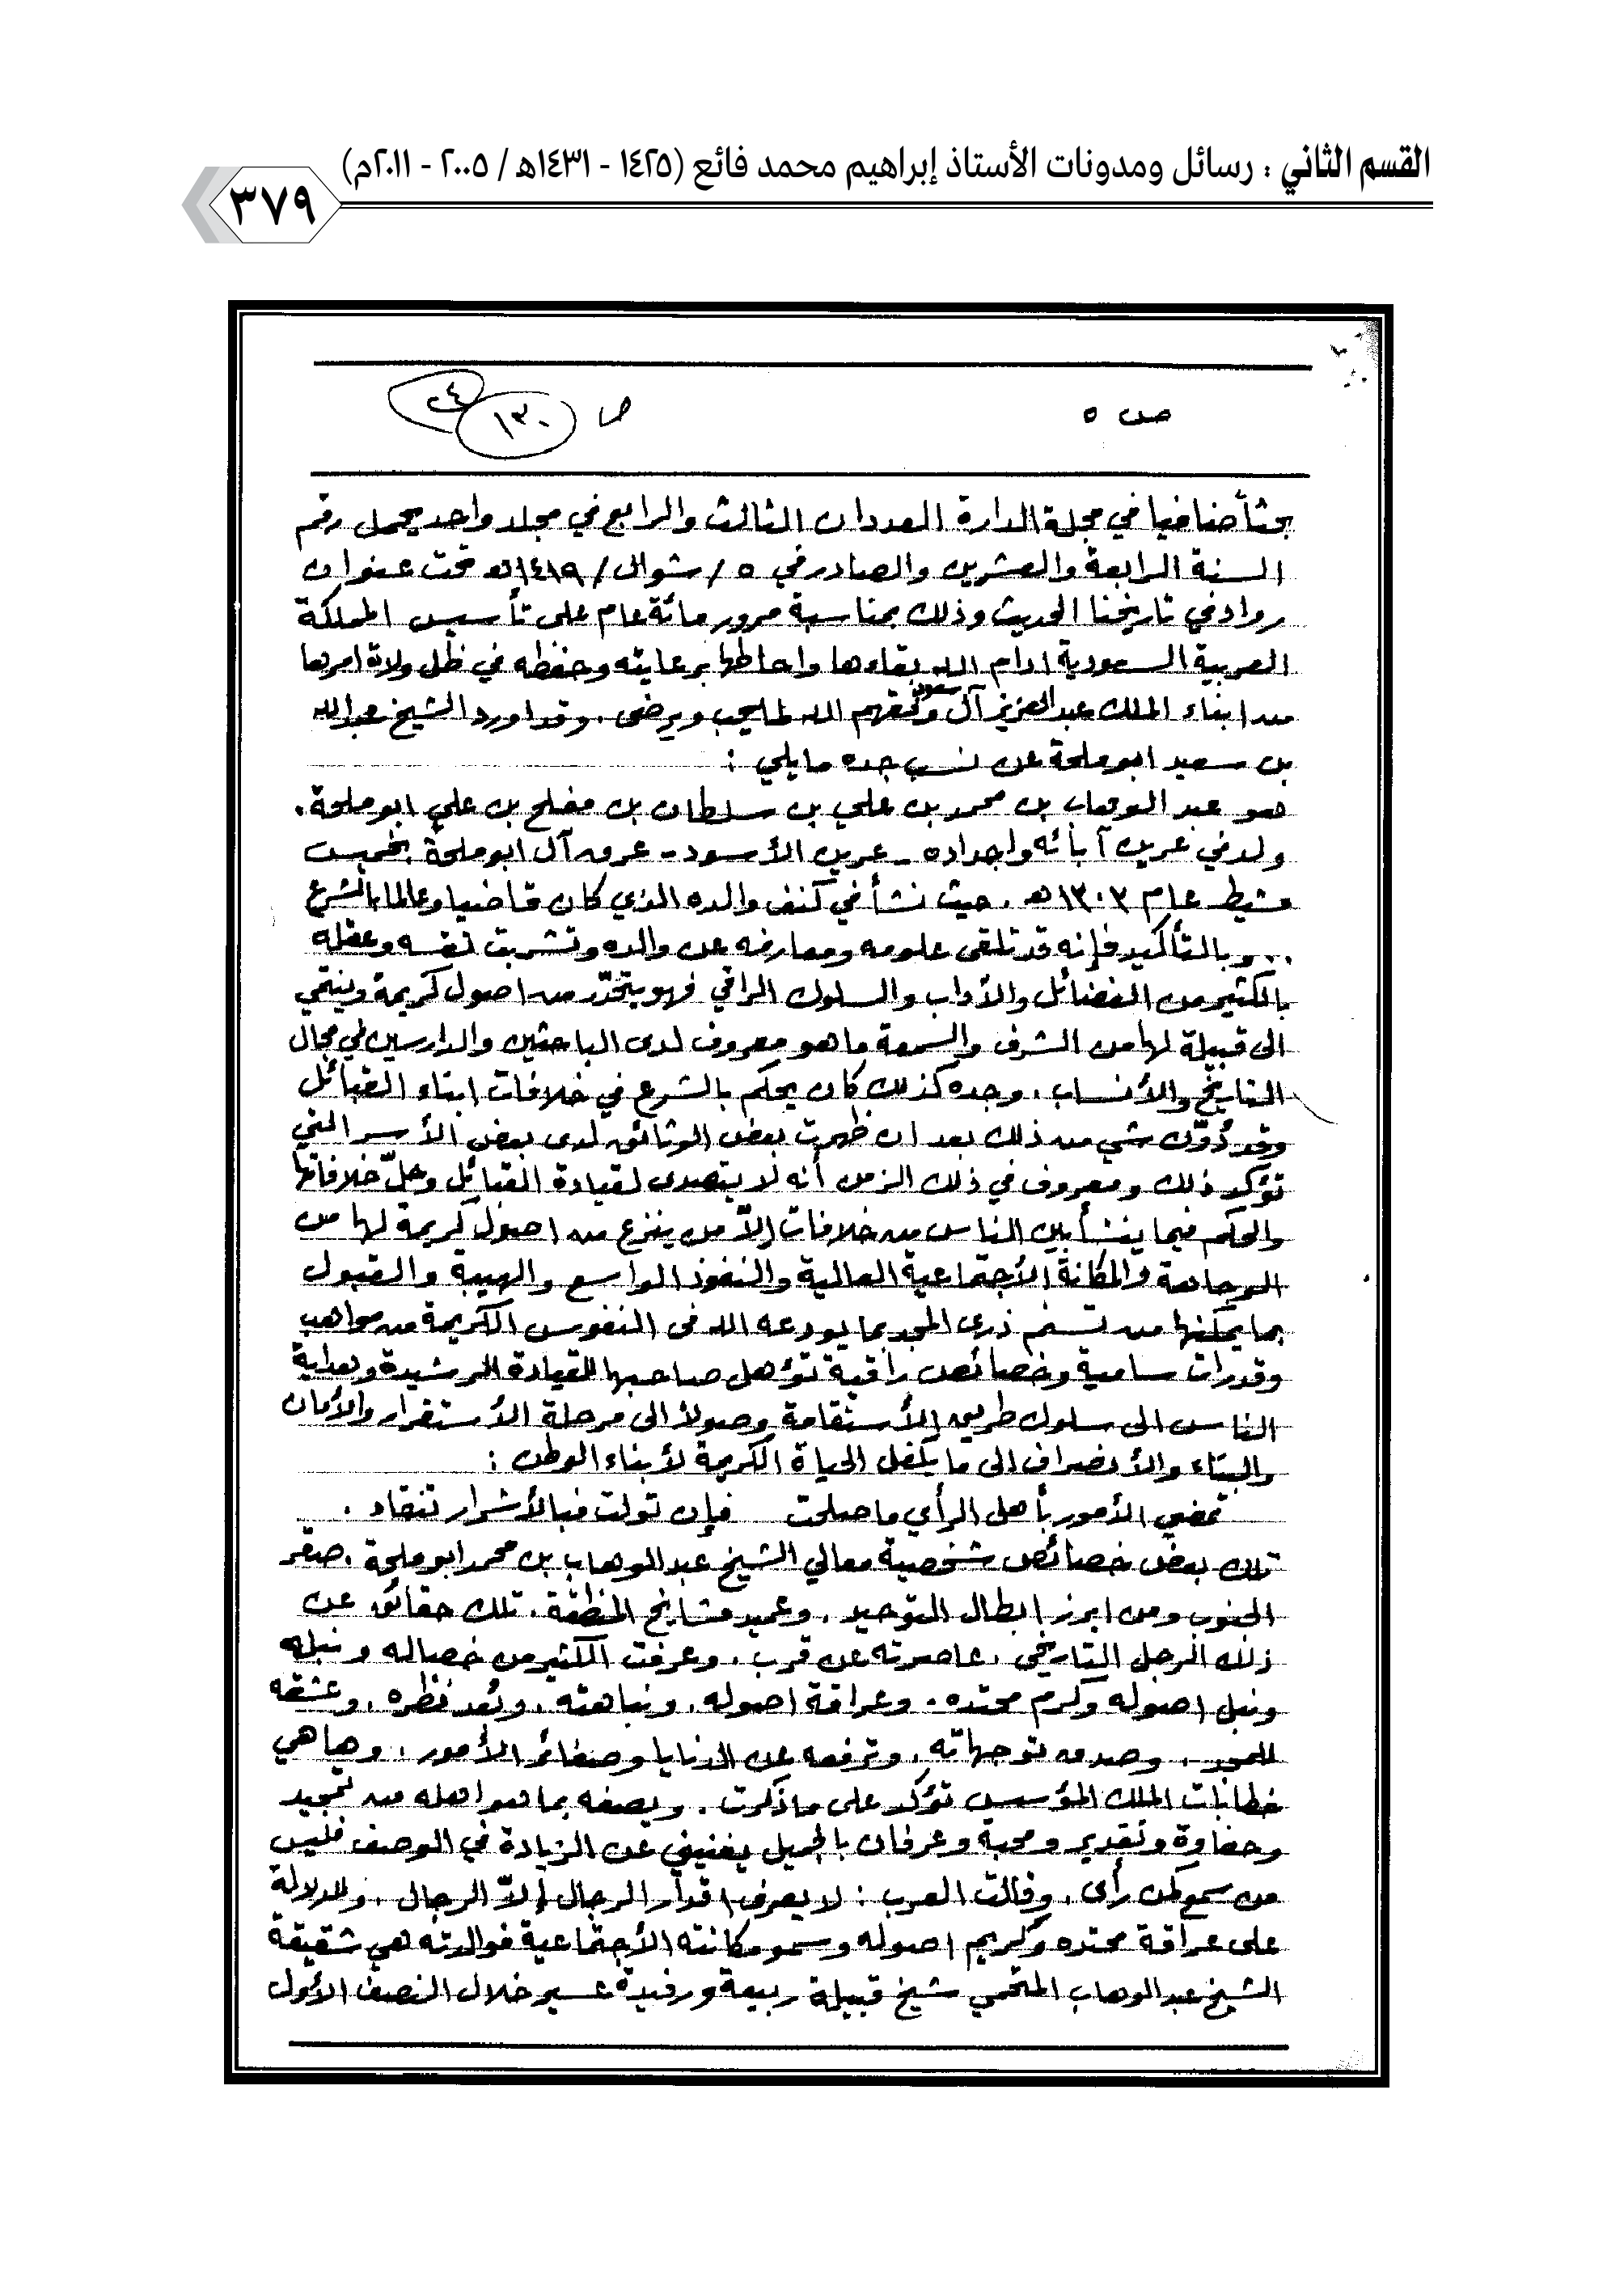 القسم الثاني : رسائل ومدونات الأستاذ إبراهيم محمد فائع (١٤٢٥ - ١٤٣١هـ / ٢٠٠٥ - ٢٠١١م)
٣٧٩
ص ٥
ص ١٣٠ ٢٤
بحثاً ضافيا في مجلة الدارة العددان الثالث والرابع في مجلد واحد يحمل رقم
السنة الرابعة والعشرين والصادر في ٥ / شوال / ١٤١٩هـ تحت عنوان
رواد في تاريخنا الحديث وذلك بمناسبة مرور مائة عام على تأسيس المملكة
العربية السعودية ادام الله بقاءها واحاطها برعايته وحفظه في ظل ولاة امرها
من ابناء الملك عبد العزيز آل سعود وفقهم الله لما يحب ويرضى . وقد اورد الشيخ عبد الله
بن سعيد ابو ملحة عن نسب جده ما يلي :
هو عبد الوهاب بن محمد بن علي بن سلطان بن مفلح بن علي ابو ملحة .
ولد في عرين آبائه واجداده - عرين الأسود - عرق آل ابو ملحة بخميس
مشيط عام ١٣٠٣هـ . حيث نشأ في كنف والده الذي كان قاضيا وعالما بالشرع
.. وبالتأكيد فإنه قد تلقى علومه ومعارفه عن والده وتشربت نفسه وعقله
بالكثير من الفضائل والأداب والسلوك الراقي فهو يتحدّر من اصول كريمة وينتمي
الى قبيلة لها من الشرف والسمعة ما هو معروف لدى الباحثين والدارسين في مجال
التاريخ والأنساب . وجده كذلك كان يحكم بالشرع في خلافات ابناء القبائل
وقد دُوّن شي من ذلك بعد ان ظهرت بعض الوثائق لدى بعض الأسر التي
تؤكد ذلك ومعروف في ذلك الزمن أنه لا يتصدى لقيادة القبائل وحلّ خلافاتها
والحكم فيما ينشأ بين الناس من خلافات إلاّ من ينزع من اصول كريمة لها من
الوجاهة والمكانة الأجتماعية العالية والنفوذ الواسع والهيبة والقبول
بما يمكنها من تسنم ذرى المجد بما يودعه الله في النفوس الكريمة من مواهب
وقدرات سامية وخصائص راقية تؤهل صاحبها للقيادة الرشيدة وهداية
الناس الى سلوك طريق الأستقامة وصولاً الى مرحلة الأستقرار والأمان
والبناء والأنصراف الى ما يكفل الحياة الكريمة لأبناء الوطن :
تمضي الأمور بأهل الرأي ما صلحت فإن تولت فبالأشرار تنقاد .
تلك بعض خصائص شخصية معالي الشيخ عبد الوهاب بن محمد ابو ملحة . صقر
الجنوب ومن ابرز ابطال التوحيد . وعميد مشايخ المنطقة . تلك حقائق عن
ذلك الرجل التاريخي . عاصرته عن قرب . وعرفت الكثير من خصاله ونبله
ونبل اصوله وكرم محتده . وعراقة اصوله . ونباهته . وبُعد نظره . وعشقه
للمجد . وصدق توجهاته . وترفعه عن الدنايا وصغائر الأمور . وها هي
خطابات الملك المؤسس تؤكد على ما ذكرت . ويصفه بما هو اهله من تمجيد
وحفاوة وتقدير ومحبة وعرفان بالجميل يغنيني عن الزيادة في الوصف فليس
من سمع كمن رأى . وقالت العرب : لا يعرف اقدار الرجال إلاّ الرجال . وللدلالة
على عراقة محتده وكريم اصوله وسمو مكانته الأجتماعية فوالدته هي شقيقة
الشيخ عبد الوهاب المتحمي شيخ قبيلة ربيعة ورفيدة عسير خلال النصف الأول